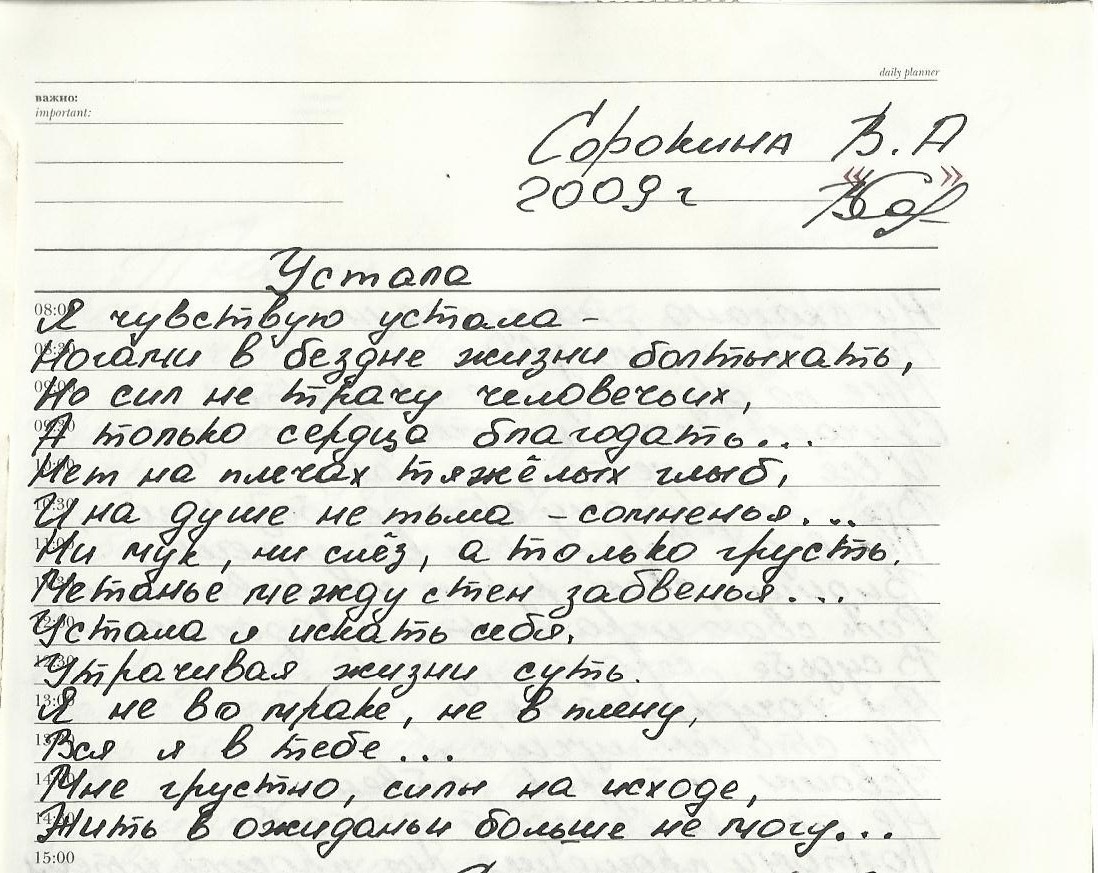 daily planner
важно:
important:
Сорокина В. А
2009 г
« »
Устала
08:00 Я чувствую устала –
08:30 Ногами в бездне жизни болтыхать,
09:00 Но сил не трачу человечьих,
09:30 А только сердца благодать...
10:00 Нет на плечах тяжёлых глыб,
10:30 И на душе не тьма – сомненья...
11:00 Ни мук, ни слёз, а только грусть.
Метанье между стен забвенья...
Устала я искать себя,
12:30 Утрачивая жизни суть.
13:00 Я не во мраке, не в плену,
13:30 Вся я в тебе...
14:00 Мне грустно, силы на исходе,
14:30 Жить в ожиданьи больше не могу...
15:00